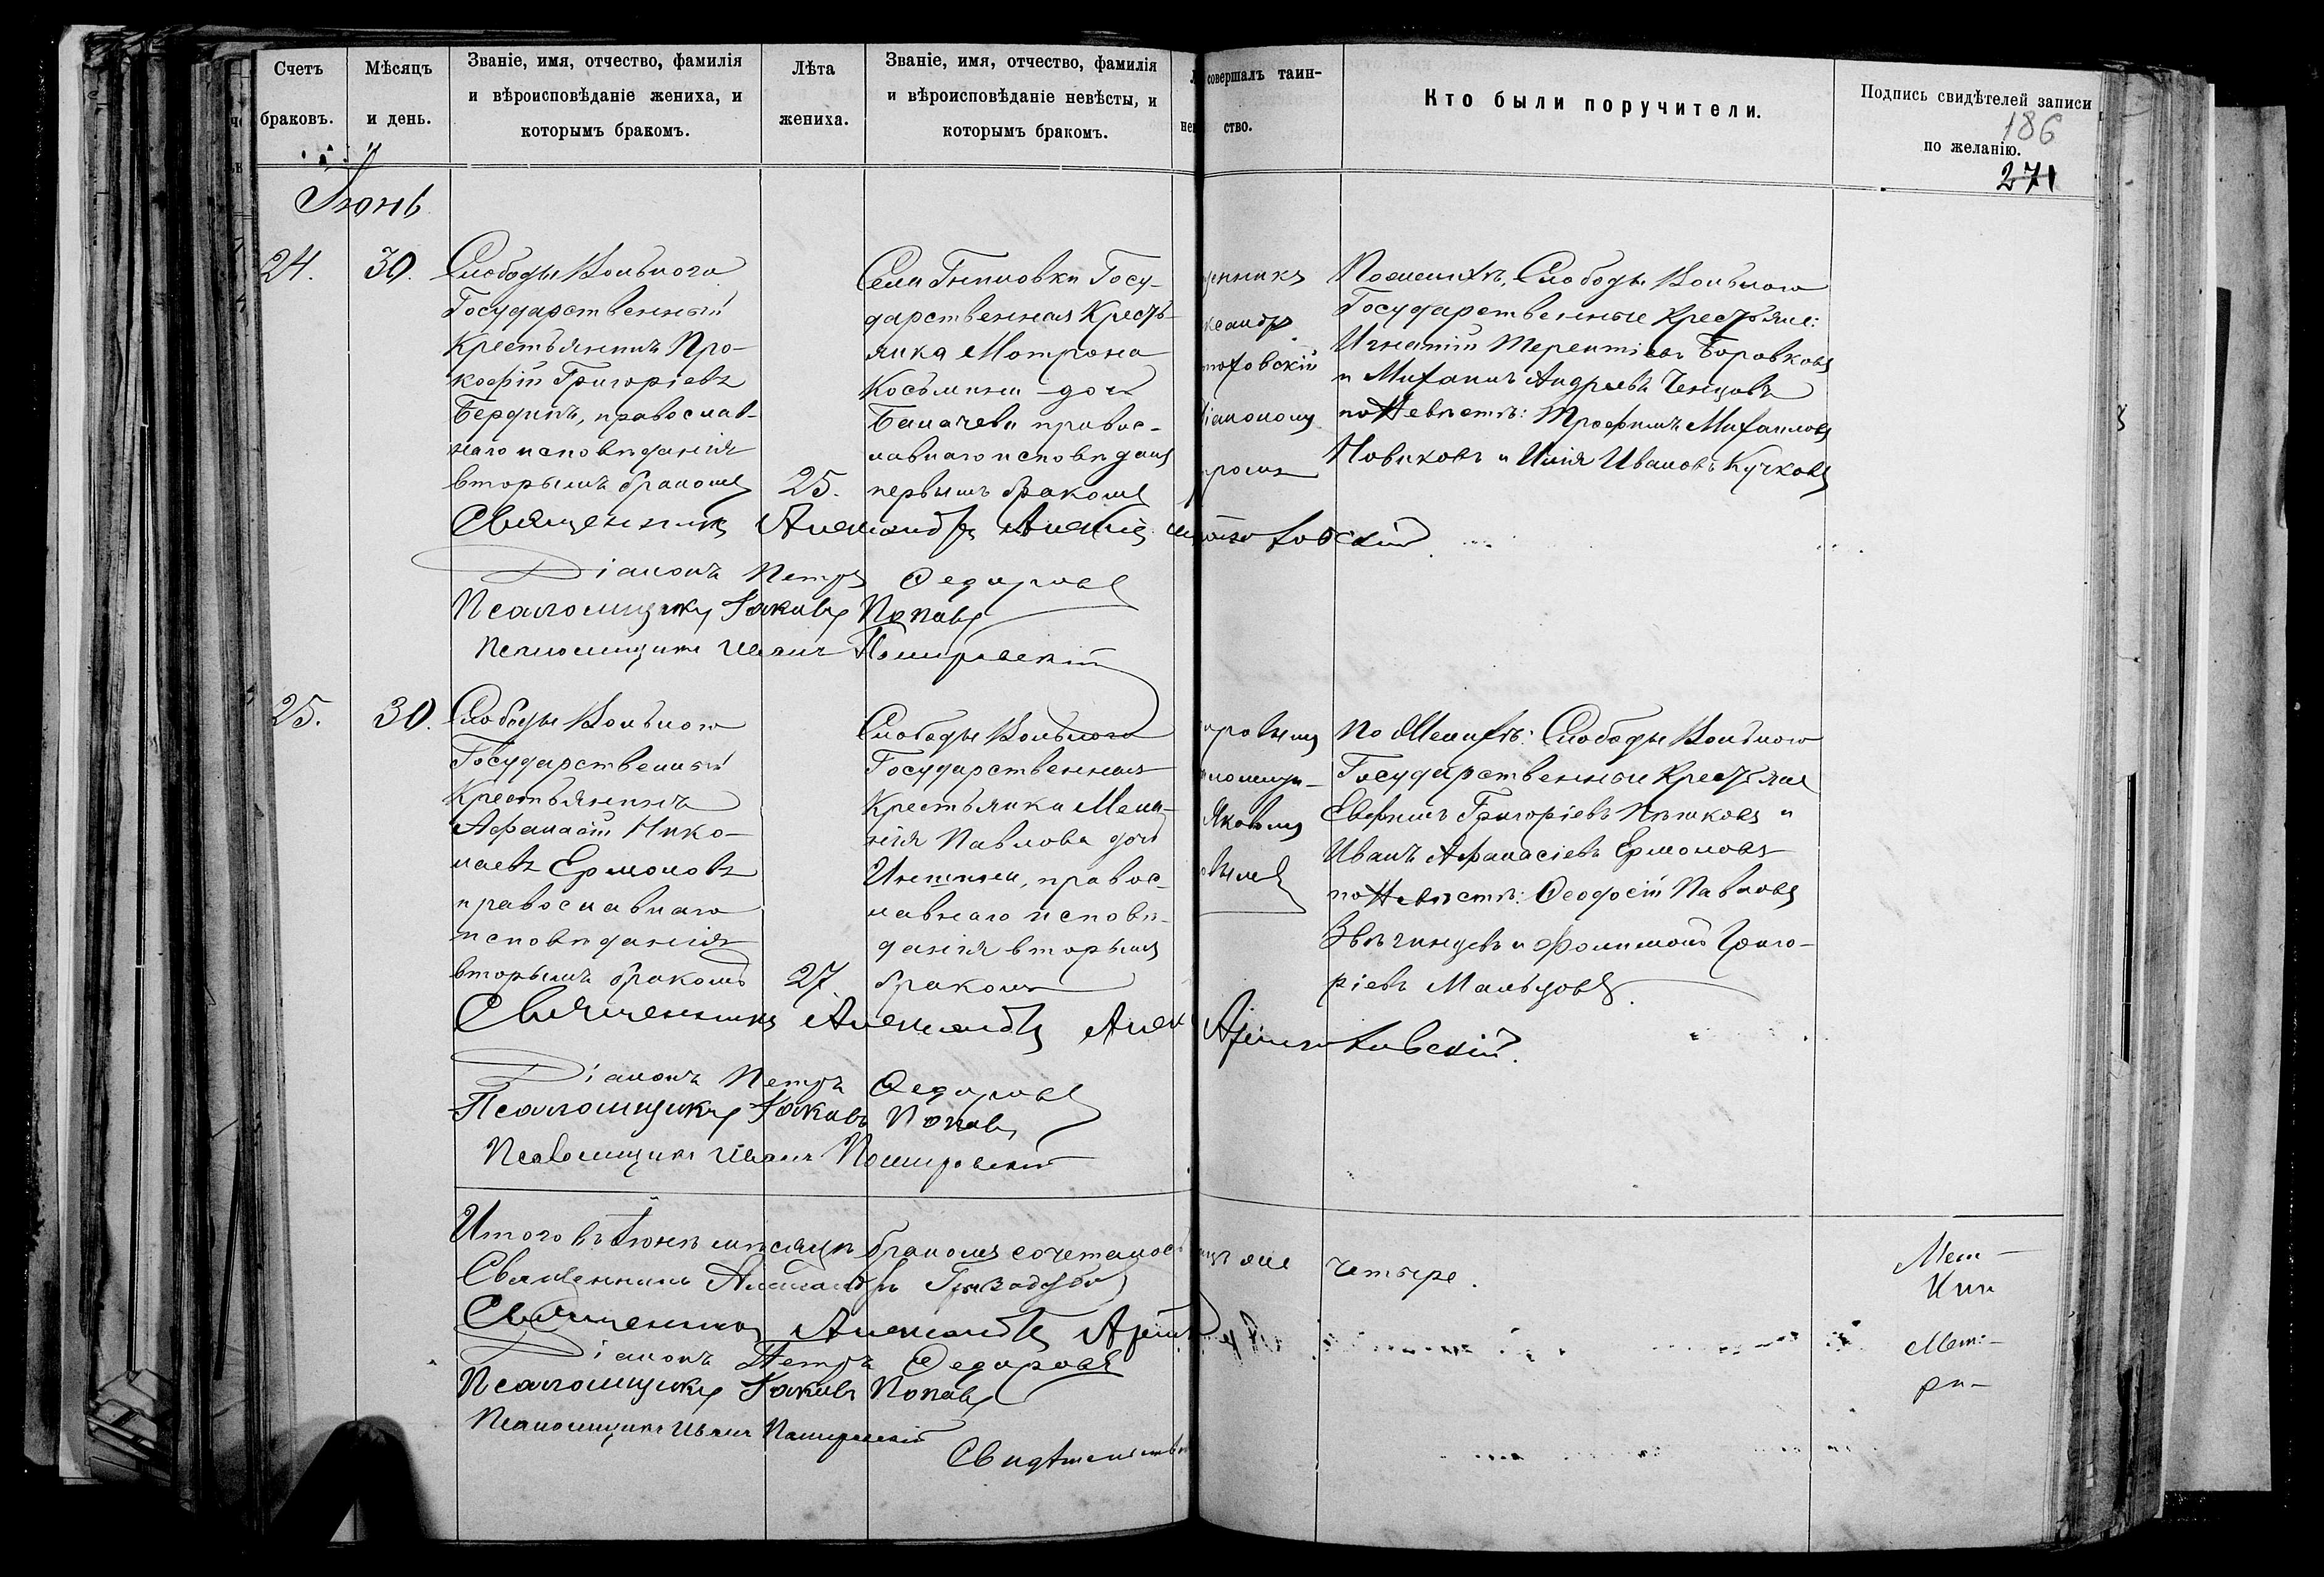 Счетъ
браковъ.
Мѣсяцъ
и день.
Званіе, имя, отчество, фамилія
и вѣроисповѣданіе жениха, и
которымъ бракомъ.
Лѣта
жениха.
Званіе, имя, отчество, фамилія
и вѣроисповѣданіе невѣсты, и
которымъ бракомъ.
совершалъ таин-
ство.
Кто были поручители.
Подпись свидѣтелей записи
по желанію.
186
271
Іюнь
24.
30.
Слободы Вольного
Государственный
Крестьянинъ Про-
кофій Григоріевъ
Бердинъ, православ-
наго исповѣданія
вторымъ бракомъ
25.
Села Гниловки Госу-
дарственная Кресть-
янка Матрона
Косьмина дочь
Балачева правос-
лавнаго исповѣдан
первымъ бракомъ
По женихѣ, Слободы Вольного
Государственные Крестьяне:
Игнатій Терентіевъ Боровковъ
и Михаилъ Андреевъ Ченцовъ
по Невѣстѣ: Трофимъ Михаиловъ
Новиковъ и Илія Ивановъ Кучковъ
Священникъ Александръ
Діаконъ Петръ Федоровъ
Псаломщикъ Іаковъ Поповъ
Псаломщикъ Иванъ
25.
30.
Слободы Вольного
Государственный
Крестьянинъ
Афанасій Нико-
лаевъ Ермоловъ
православнаго
исповѣданія
вторымъ бракомъ
27.
Слободы Вольного
Государственная
Крестьянка Мела-
нія Павлова дочь
правос-
лавнаго исповѣ-
данія вторымъ
бракомъ
По Женихѣ: Слободы Вольного
Государственные Крестьяне
Евфимъ Григоріевъ и
Иванъ Афанасіевъ Ермоловъ
по Невѣстѣ: Феодосій Павловъ
Звѣгинцевъ и Филимонъ Григо-
ріевъ Мальцовъ.
Священникъ Александръ
Діаконъ Петръ Федоровъ
Псаломщикъ Іаковъ Поповъ
Псаломщикъ Иванъ
Итого въ Іюнѣ мѣсяцѣ бракомъ сочеталось
четыре.
Священникъ Александръ
Священникъ Александръ
Діаконъ Петръ Федоровъ
Псаломщикъ Іаковъ Поповъ
Псаломщикъ Иванъ